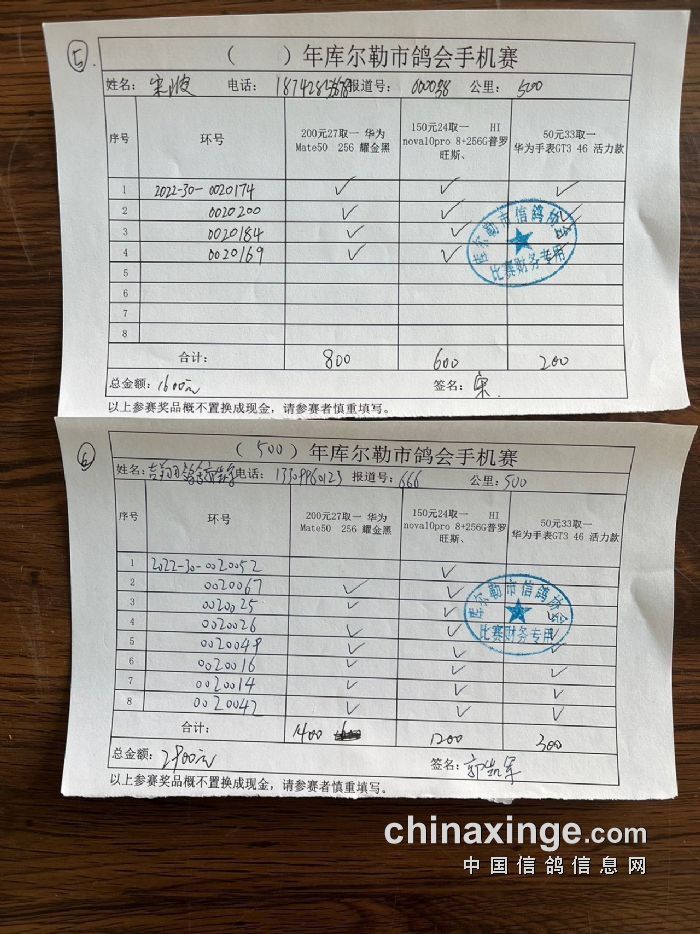 5.
( ) 年库尔勒市鸽会手机赛
姓名: 宋波 电话: 报道号: 000058 公里: 500
序号 环号 200元27取一 华为Mate50 256 耀金黑 150元24取一 HI nova10pro 8+256G普罗旺斯、 50元33取一 华为手表GT3 46 活力款
1 2022-30-0020174 ✓ ✓ ✓
2 0020200 ✓ ✓ ✓
3 0020184 ✓ ✓ ✓
4 0020169 ✓ ✓ ✓
5
6
7
8
库尔勒市信鸽协会
比赛财务专用
合计: 800 600 200
总金额: 1600元 签名: 宋
以上参赛奖品概不置换成现金，请参赛者慎重填写。
6
( 500 ) 年库尔勒市鸽会手机赛
姓名: 电话: 13309960123 报道号: 666 公里: 500
序号 环号 200元27取一 华为Mate50 256 耀金黑 150元24取一 HI nova10pro 8+256G普罗旺斯、 50元33取一 华为手表GT3 46 活力款
1 2022-30-0020052 ✓
2 0020067 ✓ ✓
3 0020025 ✓ ✓ ✓
4 0020026 ✓ ✓ ✓
5 0020049 ✓ ✓ ✓
6 0020016 ✓ ✓ ✓
7 0020014 ✓ ✓ ✓
8 0020042 ✓ ✓ ✓
库尔勒市信鸽协会
比赛财务专用
合计: 1400 1200 300
总金额: 2900元 签名: 郭凯军
以上参赛奖品概不置换成现金，请参赛者慎重填写。
chinaxinge.com
中国信鸽信息网